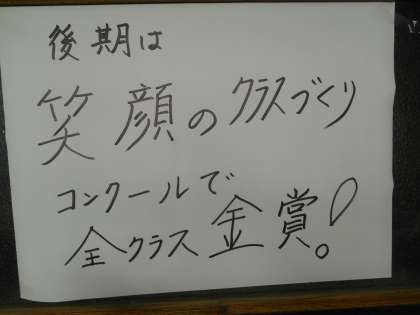 後期は
笑顔のクラスづくり
コンクールで
全クラス金賞!